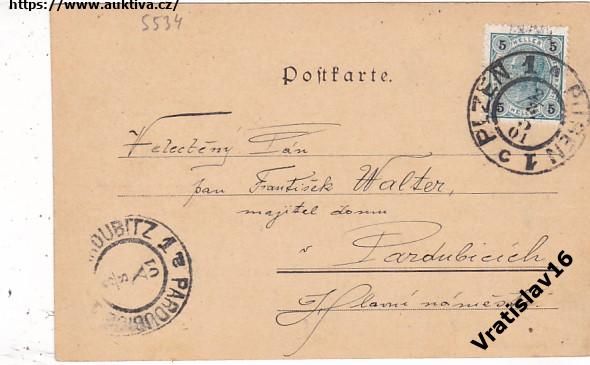 https://www.auktiva.cz/
5534
5 5
HELLER
5 5
PLZEŇ 1 PILSEN 1
01
Postkarte.
Velectěný Pán
pan František Walter,
majitel domu
v Pardubicích
Hlavní náměstí
PARDUBITZ 1 PARDUBICE
Vratislav16